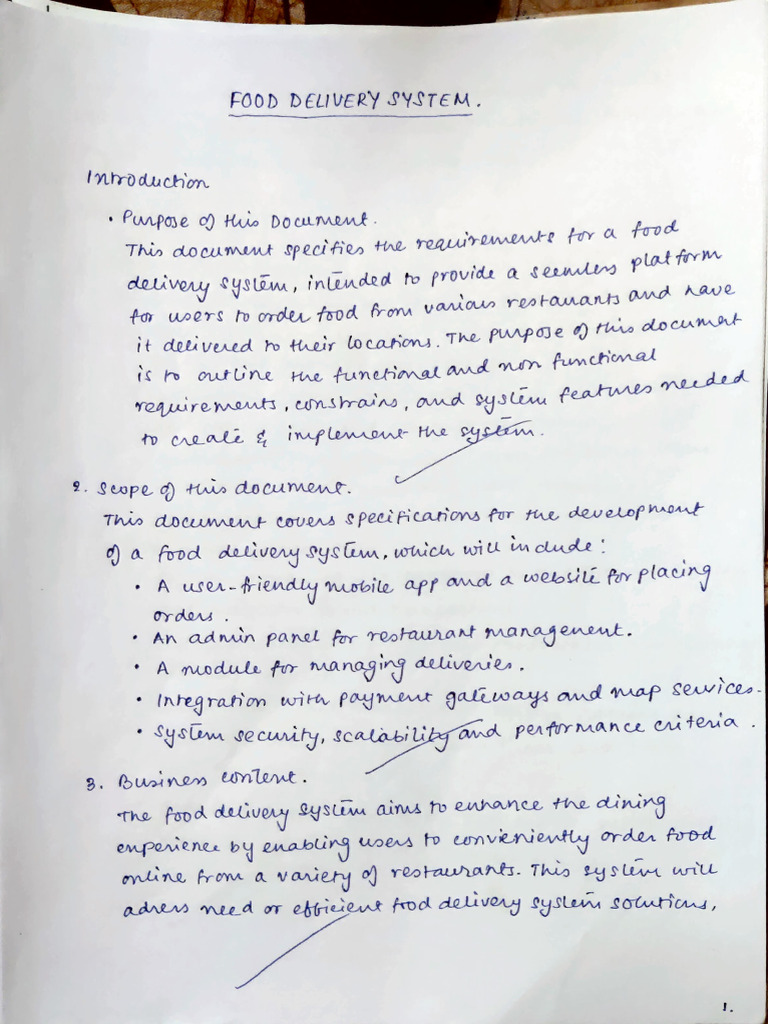 FOOD DELIVERY SYSTEM.
Introduction
• Purpose of this Document.
This document specifies the requirements for a food
delivery system, intended to provide a seemless platform
for users to order food from various restaurants and have
it delivered to their locations. The purpose of this document
is to outline the functional and non functional
requirements, constrains, and system features needed
to create & implement the system.
2. Scope of this document.
This document covers specifications for the development
of a food delivery system, which will include:
• A user-friendly mobile app and a website for placing
orders.
• An admin panel for restaurant management.
• A module for managing deliveries.
• Integration with payment gateways and map services.
• System security, scalability and performance criteria.
3. Business content.
The food delivery system aims to enhance the dining
experience by enabling users to convieniently order food
online from a variety of restaurants. This system will
adress need or efficient food delivery system solutions,
1.